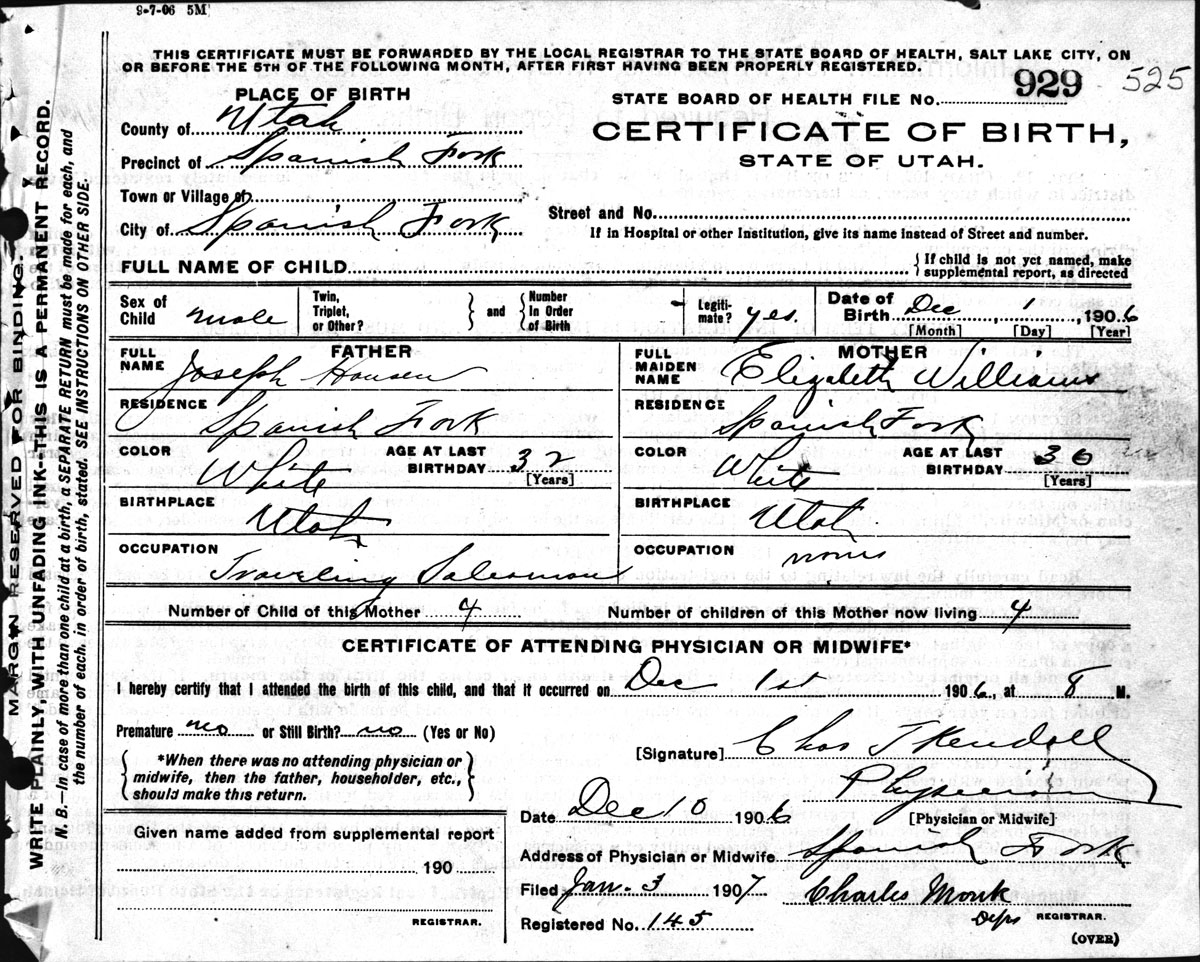 9-7-06 5M
THIS CERTIFICATE MUST BE FORWARDED BY THE LOCAL REGISTRAR TO THE STATE BOARD OF HEALTH, SALT LAKE CITY, ON
OR BEFORE THE 5TH OF THE FOLLOWING MONTH, AFTER FIRST HAVING BEEN PROPERLY REGISTERED.
PLACE OF BIRTH
County of Utah
Precinct of Spanish Fork
Town or Village of
City of Spanish Fork
STATE BOARD OF HEALTH FILE No. 929 525
CERTIFICATE OF BIRTH,
STATE OF UTAH.
Street and No.
If in Hospital or other Institution, give its name instead of Street and number.
FULL NAME OF CHILD
If child is not yet named, make
supplemental report, as directed
Sex of Child male
Twin, Triplet, or Other?
and
Number in Order of Birth
Legiti-mate? yes.
Date of Birth Dec 1, 1906
[Month] [Day] [Year]
FATHER
FULL NAME Joseph Hansen
RESIDENCE Spanish Fork
COLOR White
AGE AT LAST BIRTHDAY 32
[Years]
BIRTHPLACE Utah
OCCUPATION Traveling Salesman
MOTHER
FULL MAIDEN NAME Elizabeth Williams
RESIDENCE Spanish Fork
COLOR White
AGE AT LAST BIRTHDAY 30
[Years]
BIRTHPLACE Utah
OCCUPATION
Number of Child of this Mother 4
Number of children of this Mother now living 4
CERTIFICATE OF ATTENDING PHYSICIAN OR MIDWIFE*
I hereby certify that I attended the birth of this child, and that it occurred on Dec 1st 1906, at 8 M.
Premature no or Still Birth? no (Yes or No)
*When there was no attending physician or
midwife, then the father, householder, etc.,
should make this return.
[Signature] Chas J Kendall
Physician
[Physician or Midwife]
Date Dec 10 1906
Address of Physician or Midwife Spanish Fork
Given name added from supplemental report
190
REGISTRAR.
Filed Jan. 3 1907 Charles Monk
Depy REGISTRAR.
Registered No. 145
(OVER)
MARGIN RESERVED FOR BINDING.
WRITE PLAINLY, WITH UNFADING INK--THIS IS A PERMANENT RECORD.
N. B.—In case of more than one child at a birth, a SEPARATE RETURN must be made for each, and
the number of each, in order of birth, stated. SEE INSTRUCTIONS ON OTHER SIDE.